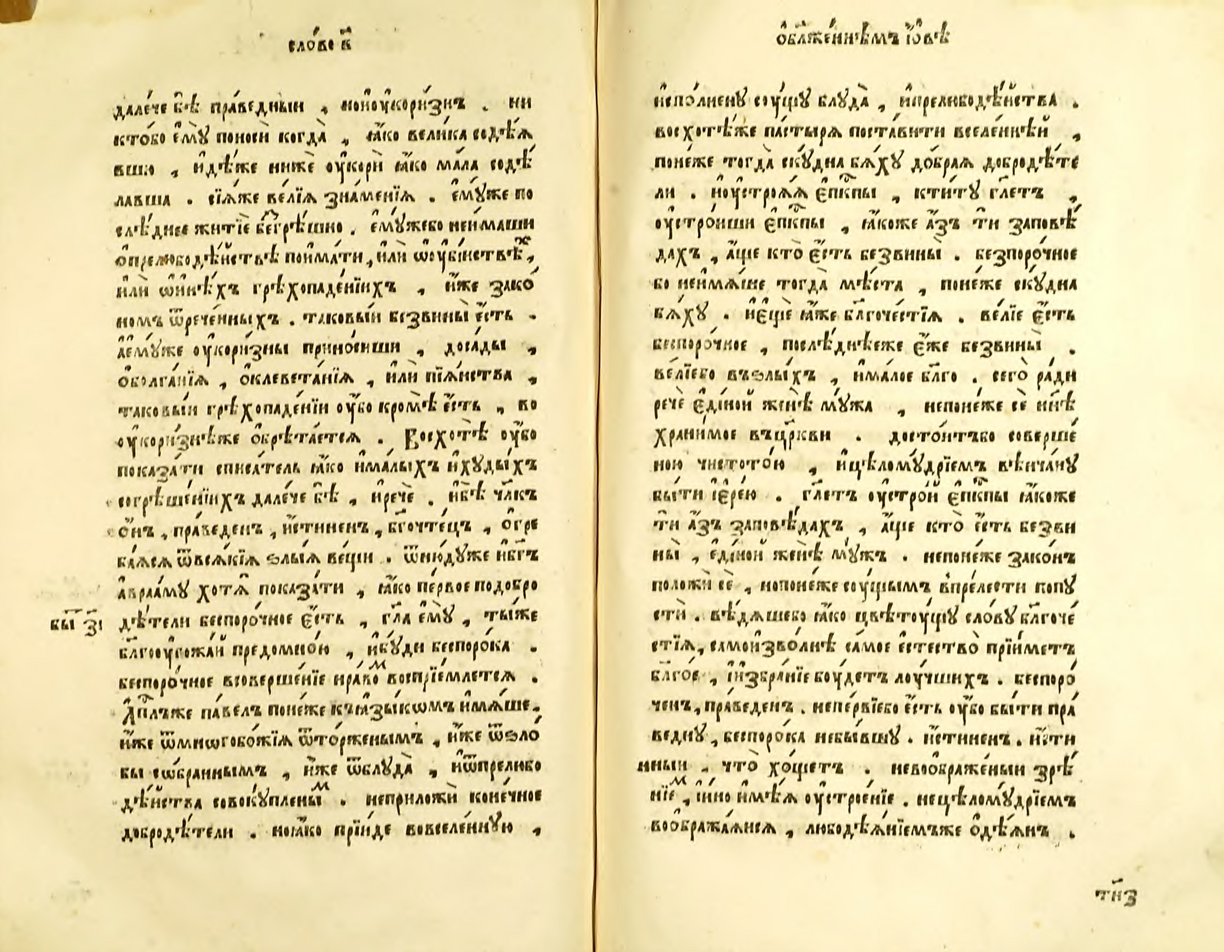 сло́во в҃
дале́че бѣ̀ пра́ведныи , ноиоу҆кори́знъ . ни
кто́бо є҆мꙋ̀ поносѝ когда̀ , ꙗ҆́ко вели́ка содѣ́ꙗ
вшю , и҆дѣ́же нижѐ оу҆корѝ ꙗ҆́ко ма́ла содѣ́
лавша . сїѧ́же ве́лїѧ зна́менїѧ . є҆мꙋ́же по
слѣ́днее житїѐ безгрѣ́шно . є҆мꙋ́жебо неи́маши
ѡ҆прелюбодѣ́йствѣ поима́ти , и҆лѝ ѡ҆оу҆бі́йствѣх ,
и҆лѝ ѡ҆и҆нѣ́хъ грѣхопаде́нїихъ , и҆́же зако́
номъ ѿрече́нныхъ . таковы́и безвины̀ є҆́сть .
а҆є҆мꙋ́же оу҆кори́зны прино́сиши , доса́ды ,
ѡ҆болга́нїѧ , ѡ҆клевета́нїѧ , и҆лѝ пїѧ́нства ,
таковы́и грѣхопаде́нїи оу҆́бо кромѣ̀ є҆́сть , во
оу҆кори́знѣже ѡ҆брѣта́етсѧ . Восхотѣ̀ оу҆́бо
показа́ти списа́тель ꙗ҆́ко и҆ма́лыхъ и҆хꙋды́хъ
согрѣше́нїихъ дале́че бѣ̀ , и҆речѐ . и҆бѣ̀ чл҃къ
ѻ҆́нъ , пра́веденъ , и҆́стиненъ , бг҃очте́цъ , ѡ҆гре
ба́ѧсѧ ѿвсѧ́кїѧ ѕлы́ѧ ве́щи . ѿню́дꙋже и҆бг҃ъ
а҆враа́мꙋ хотѧ̀ показа́ти , ꙗ҆́ко пе́рвое подобро
дѣ́тели беспоро́чное є҆́сть , гл҃а є҆мꙋ̀ , ты́же
бл҃гоꙋгожа́й предомно́ю , и҆бꙋ́ди беспоро́ка .
беспоро́чное всоверше́нїе нра́вом воспрїе́млетсѧ .
А҆пⷭ҇лъже па́велъ поне́же къꙗ҆зы́комъ и҆мѧ́ше ,
и҆́же ѿмно́гобо́жїѧ ѿто́рженымъ , и҆́же ѿѕло
бы со́браннымъ , и҆́же ѿблꙋда̀ , и҆ѿпрелюбо
дѣ́йства совокꙋплены́м . неприложѝ коне́чное
добродѣ́тели . ноꙗ҆́ко прїи́де вовселе́ннꙋю ,
бы́т з҃і
ѡ҆бл҃же́ннѣмъ і҆́ѡвѣ
и҆спо́лненꙋ сꙋ́щꙋ блꙋда̀ , и҆прелюбодѣ́йства .
восхотѣ́же па́стырѧ поста́вити вселе́ннѣй ,
поне́же тогда̀ скꙋдна̀ бѧ́хꙋ до́браѧ доброде́те
ли . и҆оу҆строѧ́ѧ є҆пⷭ҇кпы , кти́тꙋ гл҃етъ ,
оу҆стро́иши є҆пⷭ҇кпы , ꙗ҆́коже а҆́зъ тѝ заповѣ́
дахъ , а҆́ще кто̀ є҆́сть безвины̀ . безпоро́чное
бо неимѧ́ше тогда̀ мѣ́ста , поне́же скꙋдна̀
бѧ́хꙋ . и҆є҆щѐ ꙗ҆́же бл҃гоче́стїѧ . ве́лїе є҆́сть
беспоро́чное , послѣ́днѣеже є҆́же безвины̀ .
ве́лїебо въѕлы́хъ , и҆ма́лое бл҃го . сего̀ ра́ди
речѐ є҆ди́ной женѣ̀ мꙋ́жа , непоне́же сѐ нн҃ѣ
храни́мое въцр҃кви . досто́итъбо соверше́
ною чистото́ю , и҆цѣломꙋ́дрїемъ вѣнча́нꙋ
бы́ти і҆ере́ю . гл҃етъ оу҆стро́й є҆пⷭ҇кпы ꙗ҆́коже
тѝ а҆́зъ заповѣ́дахъ , а҆́ще кто̀ є҆́сть безви
ны̀ , є҆ди́ной женѣ̀ мꙋ́жъ . непоне́же зако́нъ
положѝ сѐ , нопоне́же сꙋ́щымъ впре́лести попꙋ
стѝ . вѣ́дѧшебо ꙗ҆́ко цвѣтꙋ́щꙋ сло́вꙋ бл҃гоче́
стїѧ , самоизво́лнѣ само́е є҆стество̀ прїи́метъ
бл҃го́е , и҆и҆збра́нїе бꙋ́детъ лꙋ́чшихъ . беспоро́
ченъ , пра́веденъ . непе́рвїебо є҆́сть оу҆́бо бы́ти пра́
веднꙋ , беспоро́ка небы́вшꙋ . и҆́стиненъ . и҆́сти
нныи , что̀ хо́щетъ . невоѡбраже́ныи зрѣ́
нїем , и҆́но и҆мѣ́ѧ оу҆строе́нїе . нецѣломꙋ́дрїемъ
воображаѧ́исѧ , любодѣѧ́нїемъже ѡ҆дѣ́ѧнъ .
ти҃з